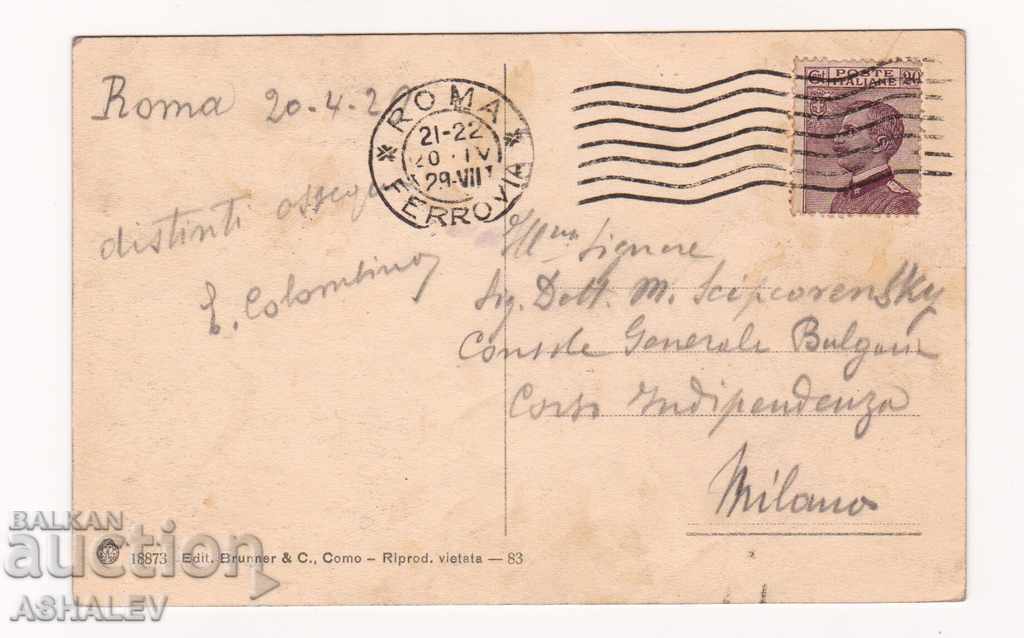 Roma 20.4.29
distinti ossequi
E. Colombino
ROMA
FERROVIA
21-22
20·IV
29·VII
Cⁱ 20
POSTE
ITALIANE
Ill.mo Signore
Sig. Dott. M.
Console Generale
Corso Indipendenza
Milano
18873 Edit. Brunner & C., Como – Riprod. vietata – 83
BALKAN
auction
ASHALEV